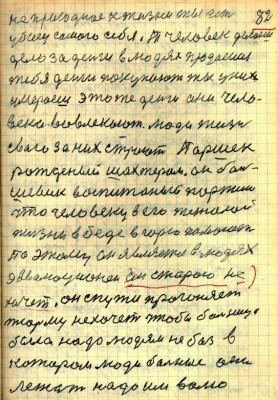 не пригодное к жизни ты ест 82
убиец самого себя. А человек делаеш
дело за деги в людях продаеш
тебя деги покупают ты у них
умераеш это те деги они чело-
века вовлекают. люди жизн
свого за них строют Паршек
рожденый шахтером, он бол-
шевик воспитаный партии
что человеку в его тежолой
жизни в беде в горю помогать
по этому он является в людях
эвалюционеи он старого не
хочет, он с пути прогоняет
тюрму не хочет чтоби болница
била надо людям не баз в
котором люди болние они
лежат надо им